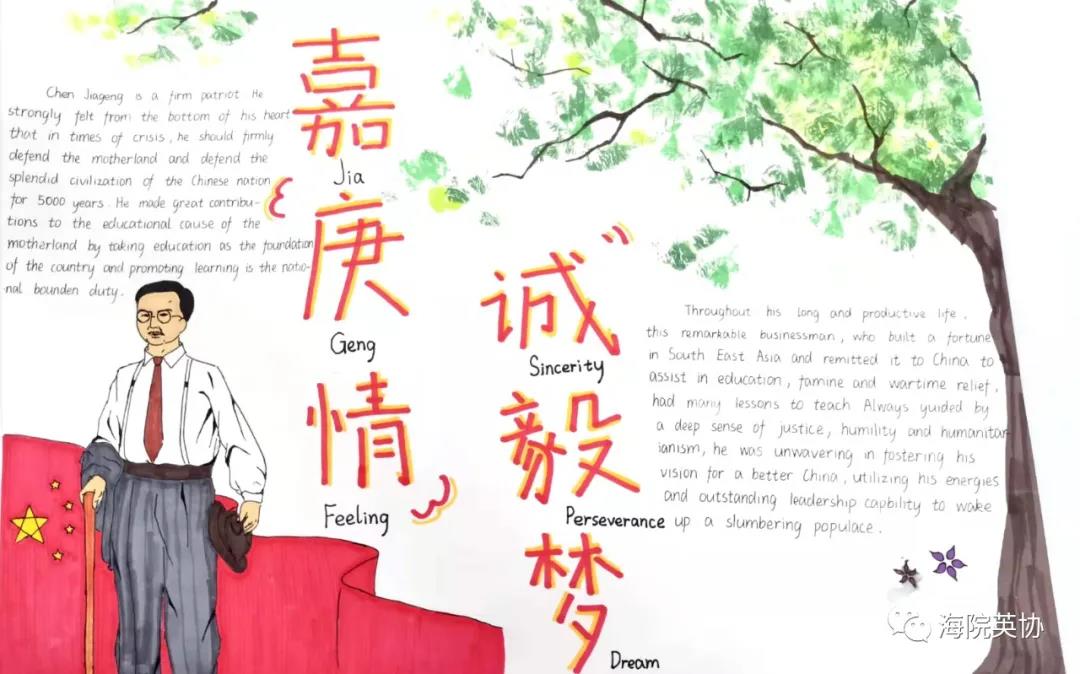 Chen Jiageng is a firm patriot He
strongly felt from the bottom of his heart
that in times of crisis, he should firmly
defend the motherland and defend the
splendid civilization of the Chinese nation
for 5000 years. He made great contribu-
tions to the educational cause of the
motherland by taking education as the foundation
of the country and promoting learning is the natio-
nal bounden duty.
嘉
Jia
庚
Geng
情
Feeling
诚
Sincerity
毅
Perseverance
梦
Dream
Throughout his long and productive life,
this remarkable businessman, who built a fortune
in South East Asia and remitted it to China to
assist in education, famine and wartime relief,
had many lessons to teach Always yuided by
a deep sense of justice, humility and humanitar-
ianism, he was unwavering in fostering his
vision for a better China, utilizing his energies
and outstanding leadership capbility to wake
up a slumbering populace.
海院英协